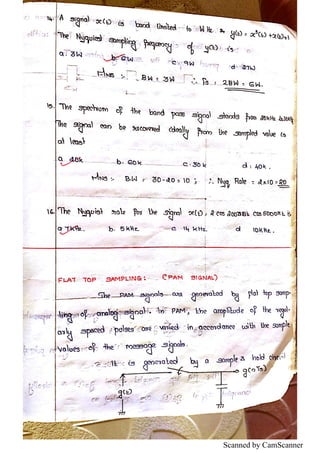 14. A signal x(t) is band limited to W Hz & y(t) = x³(t)+2x(t)+1
The Nyquist sampling frequency of y(t) is
a. 3W b. 6W c. 9W d. 2W
Ans:- BW = 3W ∴ fs = 2BW = 6W.
15. The spectrum of the band pass signal stands from 20kHz to 30kHz
The signal can be recovered ideally from the sampled value is
at least
a. 20k b. 60k c. 30k d. 40k.
Ans:- BW = 30-20 = 10 ; ∴ Nyq Rate = 2x10 = 20
16. The Nyquist rate for the signal x(t) = 2 cos 2000πt cos 5000πt is
a. 7kHz. b. 5kHz c. 14 kHz d. 10kHz.
FLAT TOP SAMPLING: (PAM SIGNAL)
The PAM signals are generated by flat top samp-
ling of analog signal. In PAM, the amplitude of the regul-
arly spaced pulses are varied in accordance with the sample
values of the message signals.
It is generated by a sample & hold circuit
g(nTs)
g(t)
Scanned by CamScanner